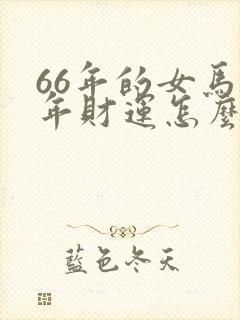 66年的女馬
年財運怎麼
藍色冬天